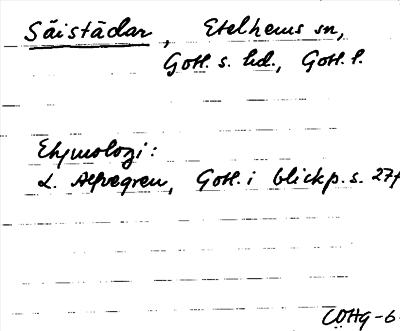 Säistädar, Etelhems sn,
Gotl. s. hd., Gotl. l.
Etymologi:
L. Alfvegren, Gotl. i blickp. s. 27f
COHg-6